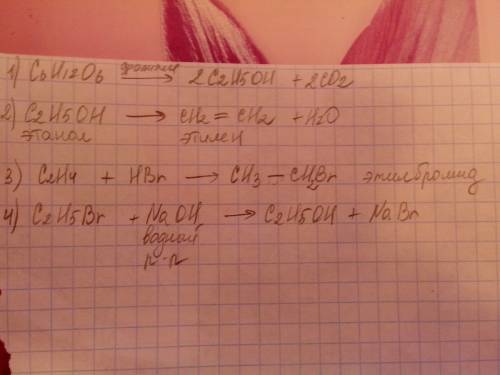 1) C6H12O6 дрожжи → 2C2H5OH + 2CO2
2) C2H5OH → CH2 = CH2 + H2O
этанол этилен
3) C2H4 + HBr → CH3 — CH2Br этилбромид
4) C2H5Br + NaOH → C2H5OH + NaBr
водный
р-р